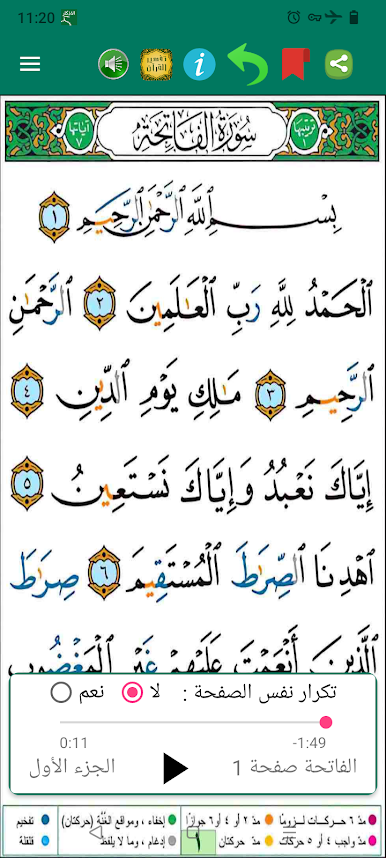 11:20
ترتيبها ١
سُورَةُ الْفَاتِحَةِ
آياتها ٧
بِسْمِ ٱللَّهِ ٱلرَّحْمَٰنِ ٱلرَّحِيمِ ١
ٱلْحَمْدُ لِلَّهِ رَبِّ ٱلْعَٰلَمِينَ ٢ ٱلرَّحْمَٰنِ
ٱلرَّحِيمِ ٣ مَٰلِكِ يَوْمِ ٱلدِّينِ ٤
إِيَّاكَ نَعْبُدُ وَإِيَّاكَ نَسْتَعِينُ ٥
ٱهْدِنَا ٱلصِّرَٰطَ ٱلْمُسْتَقِيمَ ٦ صِرَٰطَ
ٱلَّذِينَ أَنْعَمْتَ عَلَيْهِمْ غَيْرِ ٱلْمَغْضُوبِ
تكرار نفس الصفحة : لا نعم
0:11 -1:49
الفاتحة صفحة 1 الجزء الأول
مدّ ٦ حركـات لـزومًا مدّ ٢ أو ٤ أو ٦ جوازًا إخفاء ، ومواقع الغُنَّة (حركتان) تفخيم
مدّ واجب ٤ أو ٥ حركات مدّ حركتان إدغام ، وما لا يلفظ قلقلة
١